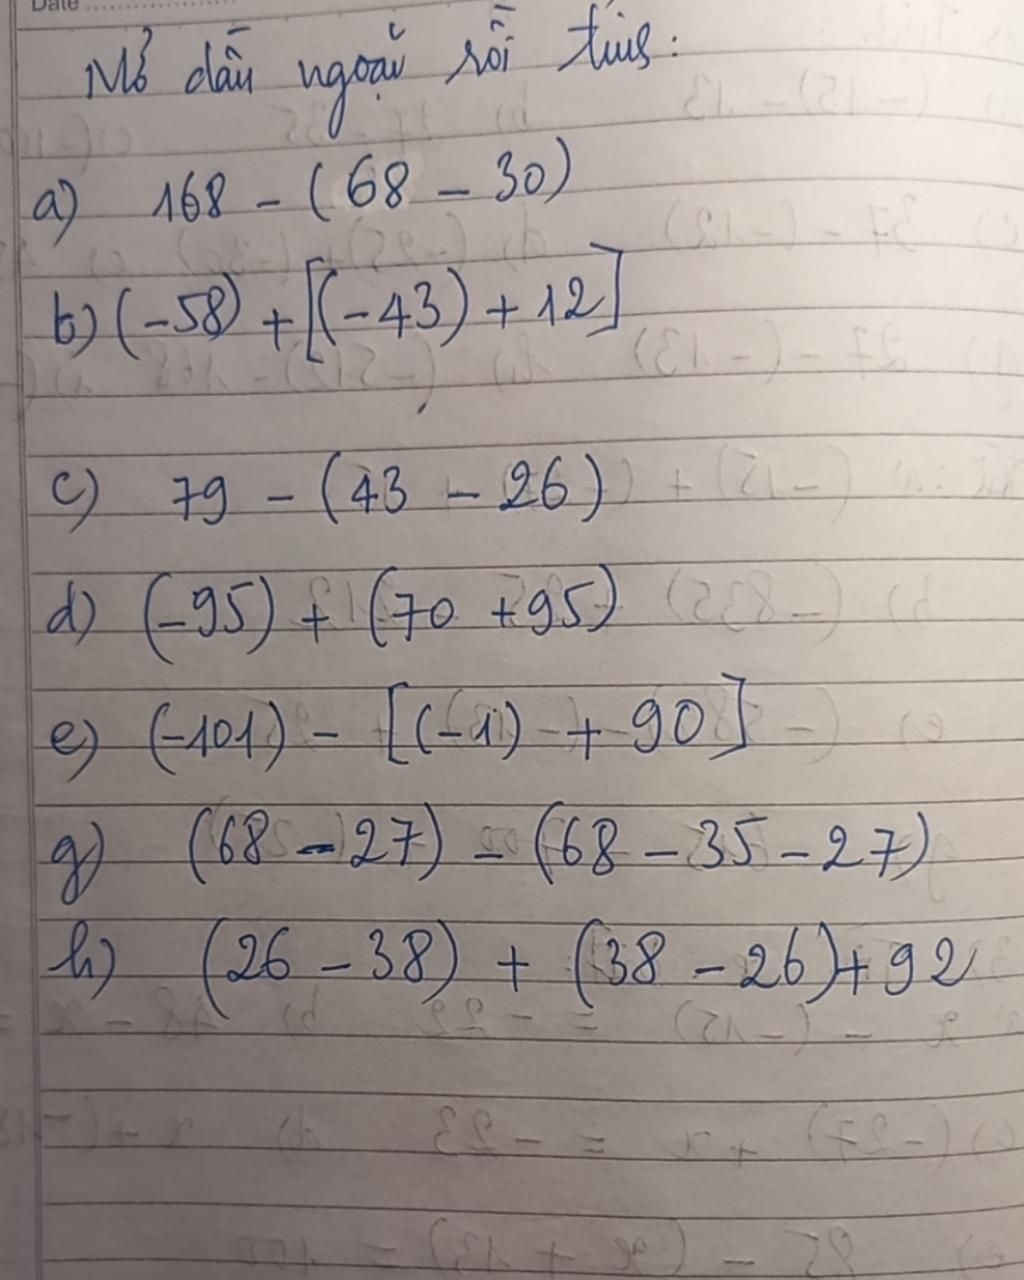 Date
Mở dấu ngoặc rồi tính:
a) 168 - (68 - 30)
b) (-58) + [(-43) + 12]
c) 79 - (43 - 26)
d) (-95) + (70 + 95)
e) (-101) - [(-1) + 90]
g) (68 - 27) - (68 - 35 - 27)
h) (26 - 38) + (38 - 26) + 92